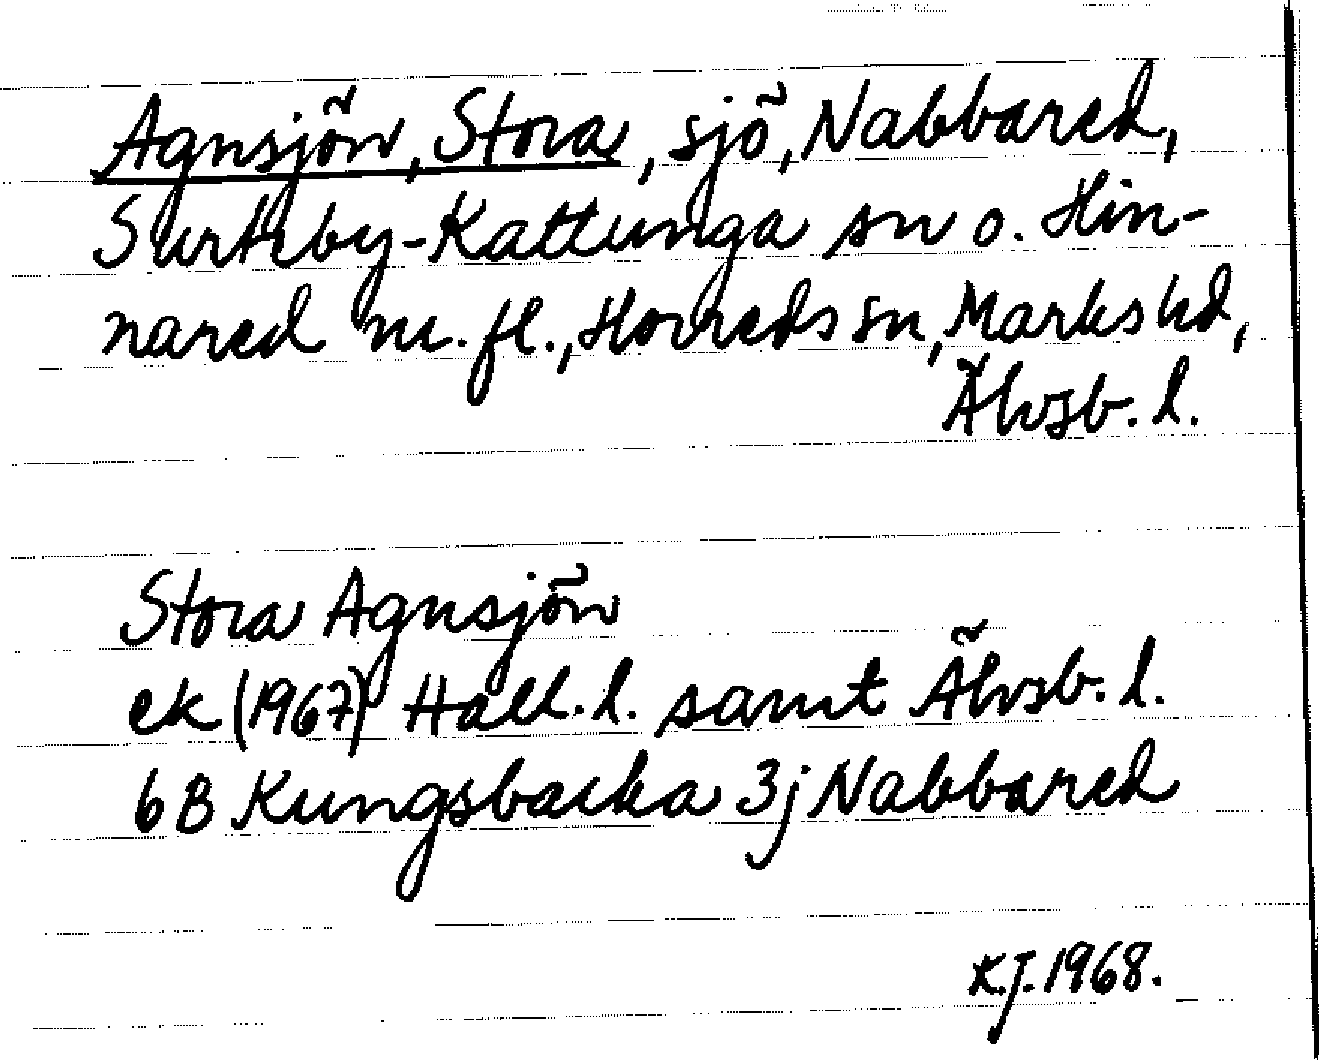 Agnsjön, Stora, sjö, Nabbared,
Surteby-Kattunga sn o. Hin-
nared m. fl., Horreds sn, Marks hd,
Älvsb. l.
Stora Agnsjön
ek (1967) Hall. l. samt Älvsb. l.
6B Kungsbacka 3j Nabbared
K.J. 1968.